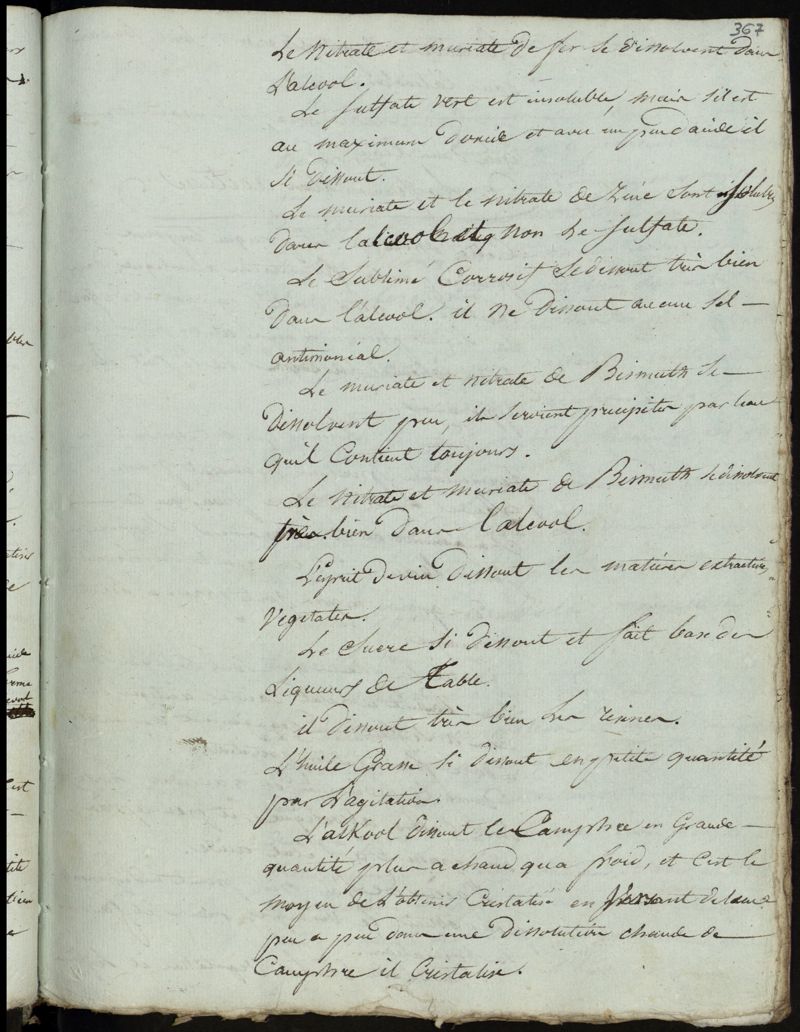 367
Le Nitrate et muriate de fer se dissolvent dans
L'alcool.
Le sulfate vert est insoluble, mais s'il est
au maximum d'oxide et avec un peu d'acide il
s'i dissout.
Le muriate et le nitrate de Zinc sont solubles
dans l'alcool non le sulfate.
Le Sublimé Corrosif se dissout très bien
dans l'alcool. il ne dissout aucun sel
antimonial.
Le muriate et nitrate de Bismuth se
dissolvent peu, ils seroient precipités par l'eau
quil Contient toujours.
Le nitrate et muriate de Bismuth se dissolvent
très bien dans l'alcool.
L'esprit de vin dissout les matières extractives
vegetales.
Le Sucre si dissout et fait base des
Liqueurs de Table.
il dissout très bien les résines.
L'huile Grasse si dissout en petite quantité
par l'agitation.
L'alkool dissout le Camphre en Grande
quantité plus a chaud qu'a froid, et c'est le
moyen de l'obtenir Cristalisé en versant de l'eau
peu a peu dans une dissolution chaude de
Camphre il Cristalise.